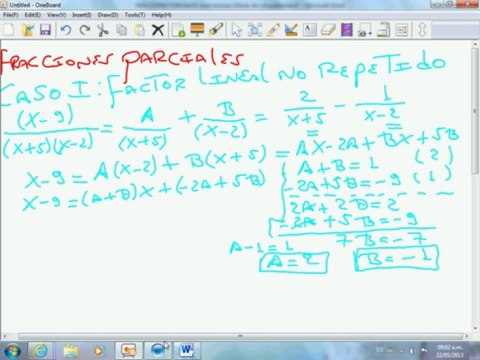 Untitled - OneBoard
File (F) Edit (E) View (V) Insert (I) Draw (D) Tools (T) Help (H)
FRACCIONES PARCIALES
CASO I: FACTOR LINEAL NO REPETIDO
(X-9) / (X+5)(X-2) = A / (X+5) + B / (X-2) = 2 / X+5 - 1 / X-2
X-9 = A(X-2) + B(X+5) = AX-2A+BX+5B
X-9 = (A+B)X + (-2A+5B)
A+B=1 (2)
-2A+5B=-9 (1)
2A+2B=2
-2A+5B=-9
7B=-7
A-1=1
A=2
B=-1
ES
09:02 a.m.
22/05/2013